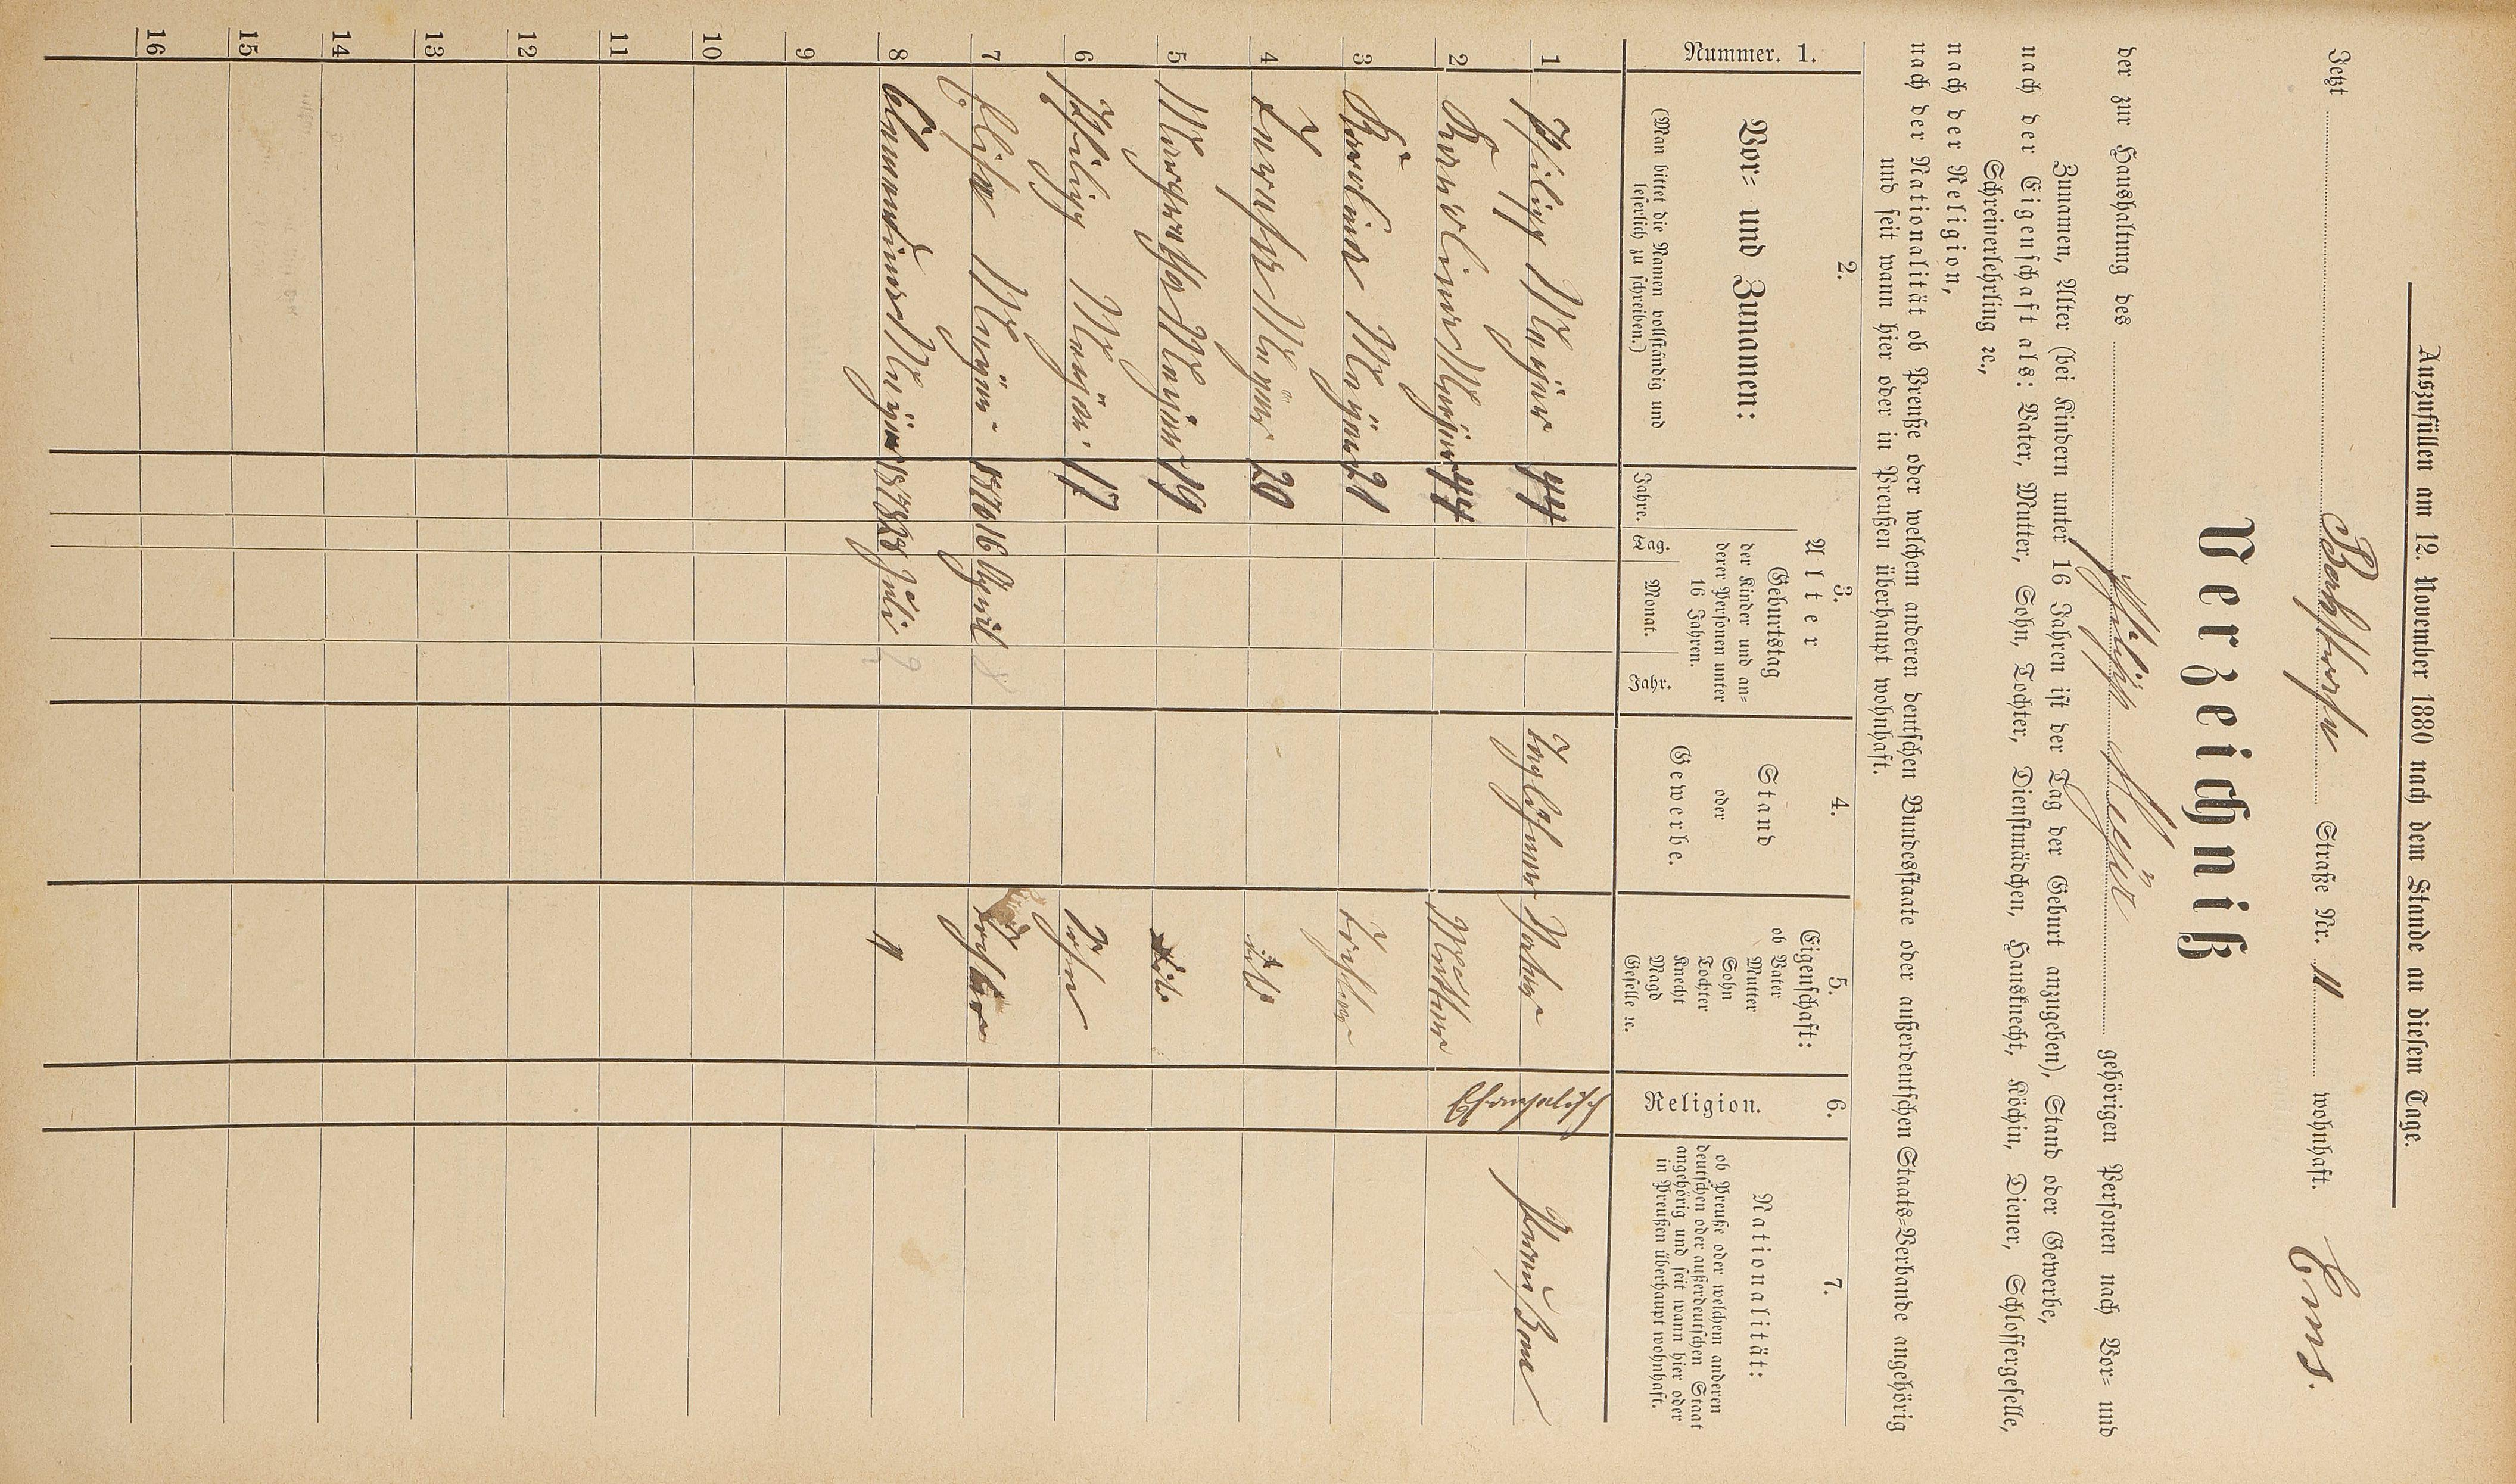 Auszufüllen am 12. November 1880 nach dem Stande an diesem Tage.
Jetzt Straße Nr. 11 wohnhaft. Ems.
Verzeichniß
der zur Haushaltung des Philipp gehörigen Personen nach Vor= und
Zunamen, Alter (bei Kindern unter 16 Jahren ist der Tag der Geburt anzugeben), Stand oder Gewerbe,
nach der Eigenschaft als: Vater, Mutter, Sohn, Tochter, Dienstmädchen, Hausknecht, Köchin, Diener, Schlossergeselle,
Schreinerlehrling ꝛc.,
nach der Religion,
nach der Nationalität ob Preuße oder welchem anderen deutschen Bundesstaate oder außerdeutschen Staats=Verbande angehörig
und seit wann hier oder in Preußen überhaupt wohnhaft.
Nummer. 1.
2.
Vor= und Zunamen:
(Man bittet die Namen vollständig und
leserlich zu schreiben.)
3.
Alter
Jahre.
Geburtstag
der Kinder und an=
derer Personen unter
16 Jahren.
Tag. Monat. Jahr.
4.
Stand
oder
Gewerbe.
5.
Eigenschaft:
ob Vater
Mutter
Sohn
Tochter
Knecht
Magd
Geselle ꝛc.
6.
Religion.
7.
Nationalität:
ob Preuße oder welchem anderen
deutschen oder außerdeutschen Staat
angehörig und seit wann hier oder
in Preußen überhaupt wohnhaft.
1 Philipp 44 Taglöhner Vater Efangelisch Preußen
2 Karoline 44 Mutter
3 Karoline 21 Tochter
4 20
5 Margaretha 19
6 Philipp 17 Sohn
7 Elise 1876 16 April Tochter
8 1878 28 Juli "
9
10
11
12
13
14
15
16